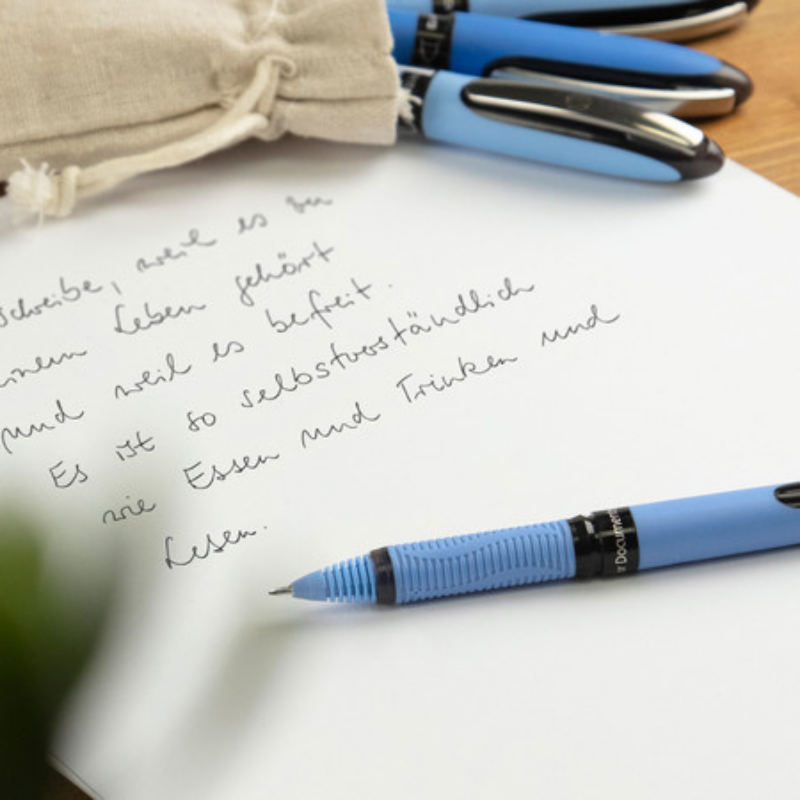 schreibe, weil es zu
einem Leben gehört
und weil es befreit.
Es ist so selbstverständlich
wie Essen und Trinken und
Lesen.
r Document